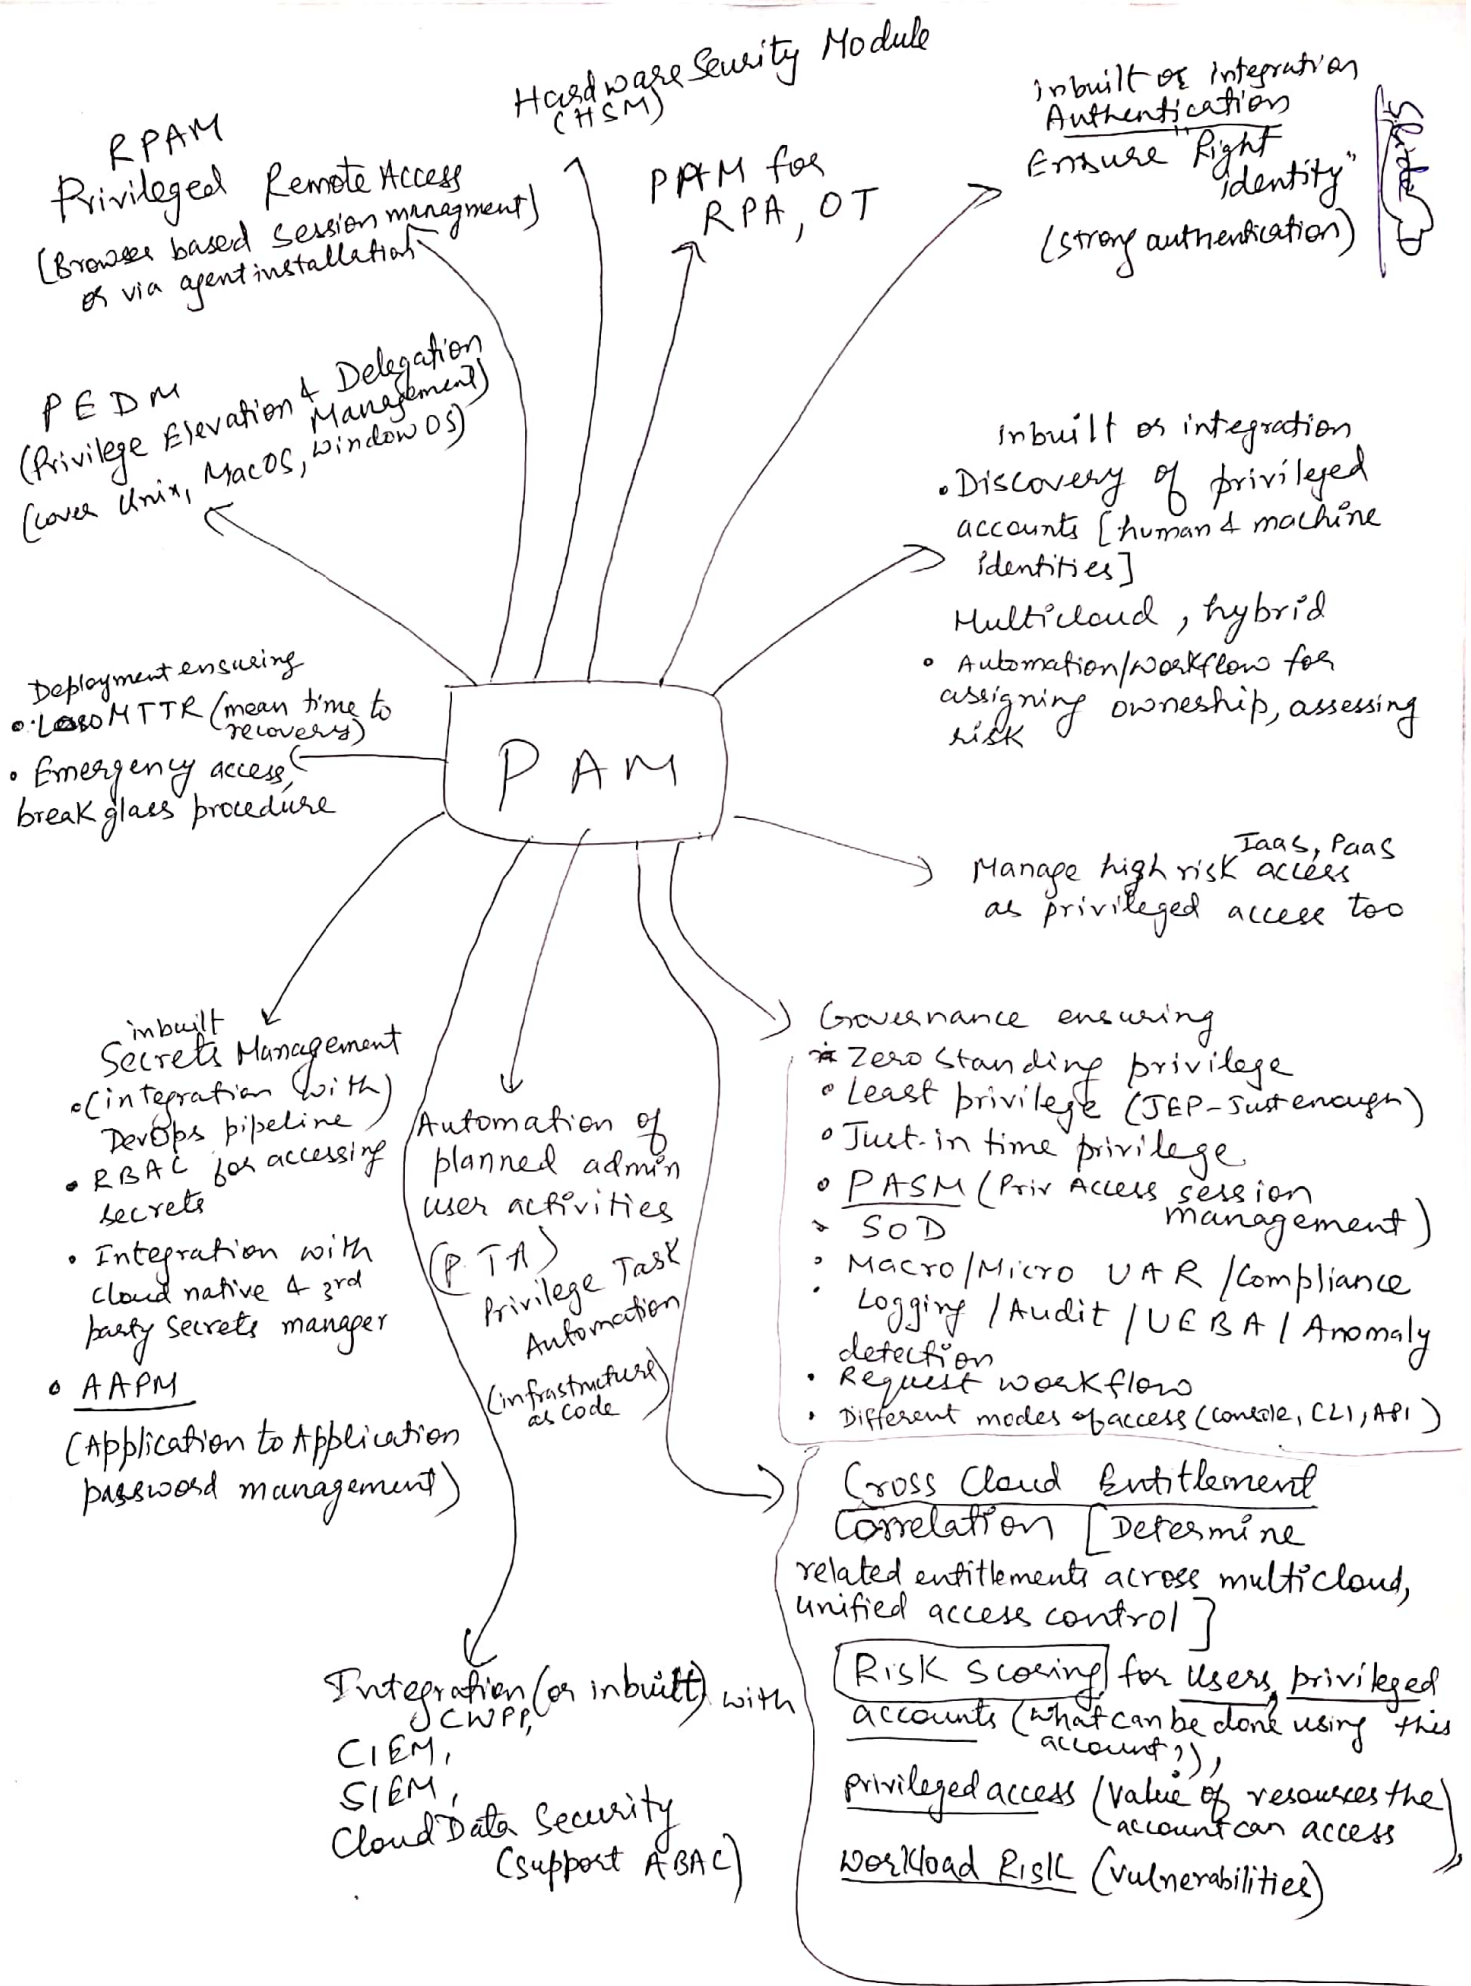 Hardware Seurity Module
(HSM)
RPAM
Privileged Remote Access
(Browser based session managment)
or via agent installation
PAM for
RPA, OT
inbuilt or integration
Authentication
Ensure "Right
identity"
(strong authentication)
PEDM
(Privilege Elevation & Delegation
Management)
(cover Unix, MacOS, Window OS)
inbuilt or integration
• Discovery of privileged
accounts [human & machine
identities]
Multicloud, hybrid
• Automation/workflow for
assigning owneship, assessing
risk
Deployment ensuring
• MTTR (mean time to
recovery)
• Emergency access,
break glass procedure
PAM
IaaS, PaaS
Manage high risk access
as privileged access too
inbuilt
Secrets Management
• (integration with)
DevOps pipeline
• RBAC for accessing
secrets
• Integration with
cloud native & 3rd
party secrets manager
• AAPM
(Application to Application
password management)
Automation of
planned admin
user activities
(PTA)
Privilege Task
Automation
(infrastructure)
as code
Governance ensuring
* Zero Standing privilege
• Least privilege (JEP-Just enough)
• Just-in time privilege
• PASM (Priv Access session
management)
• SOD
• Macro/Micro UAR /Compliance
• Logging /Audit /UEBA / Anomaly
detection
• Request workflow
• Different modes of access (console, CLI, API)
Cross Cloud Entitlement
Correlation [Determine
related entitlements across multicloud,
unified access control]
Risk Scoring for users, privileged
accounts (what can be done using this
account?),
privileged access (value of resources the
account can access)
workload Risk (vulnerabilities)
Integration (or inbuilt) with
CWPP,
CIEM,
SIEM,
Cloud Data Security
(support ABAC)